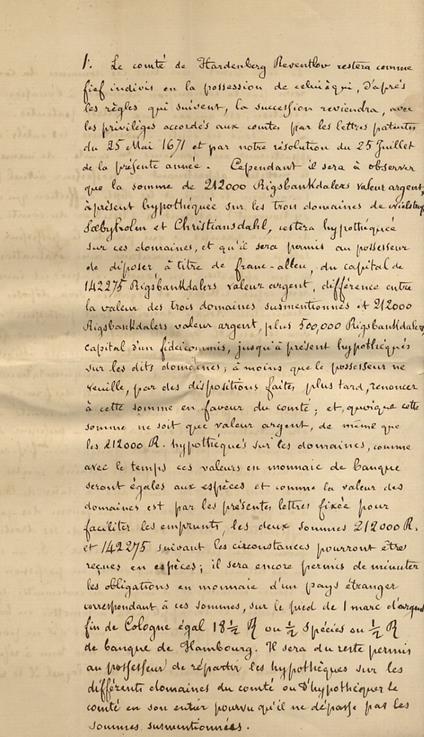 1. Le comté de Hardenberg Reventlov restera comme
fief indivis en la possession de celui à qui, d'après
les règles qui suivent, la succession reviendra, avec
les privilèges accordés aux comtes par les lettres patentes
du 25 Mai 1671 et par notre résolution du 25 Juillet
de la présente année. Cependant il sera à observer
que la somme de 212000 Rigsbankdalers valeur argent,
à présent hypothéquée sur les trois domaines de
Sæbyholm et Christiansdahl, restera hypothéquée
sur ces domaines, et qu'il sera permis au possesseur
de disposer à titre de franc-alleu, du capital de
142275 Rigsbankdalers valeur argent, différence entre
la valeur des trois domaines susmentionnés et 212000
Rigsbankdalers valeur argent, plus 500,000 Rigsbankdalers,
capital d'un fidéicommis, jusqu'à présent hypothéqués
sur les dits domaines; à moins que le possesseur ne
veuille, par des dispositions faites, plus tard, renoncer
à cette somme en faveur du comté; et, quoique cette
somme ne soit que valeur argent, de même que
les 212000 R. hypothéqués sur les domaines, comme
avec le temps ces valeurs en monnaie de banque
seront égales aux espèces et comme la valeur des
domaines est par les présentes lettres fixée pour
faciliter les emprunts, les deux sommes 212000 R.
et 142275 suivant les circonstances pourront être
reçues en espèces; il sera encore permis de minuter
les obligations en monnaie d'un pays étranger
correspondant à ces sommes, sur le pied de 1 marc d'argent
fin de Cologne égal 18½ R ou ½ Spécies ou ½ R
de banque de Hambourg. Il sera du reste permis
au possesseur de répartir les hypothèques sur les
différents domaines du comté ou d'hypothéquer le
comté en son entier pourvu qu'il ne dépasse pas les
sommes susmentionnées.